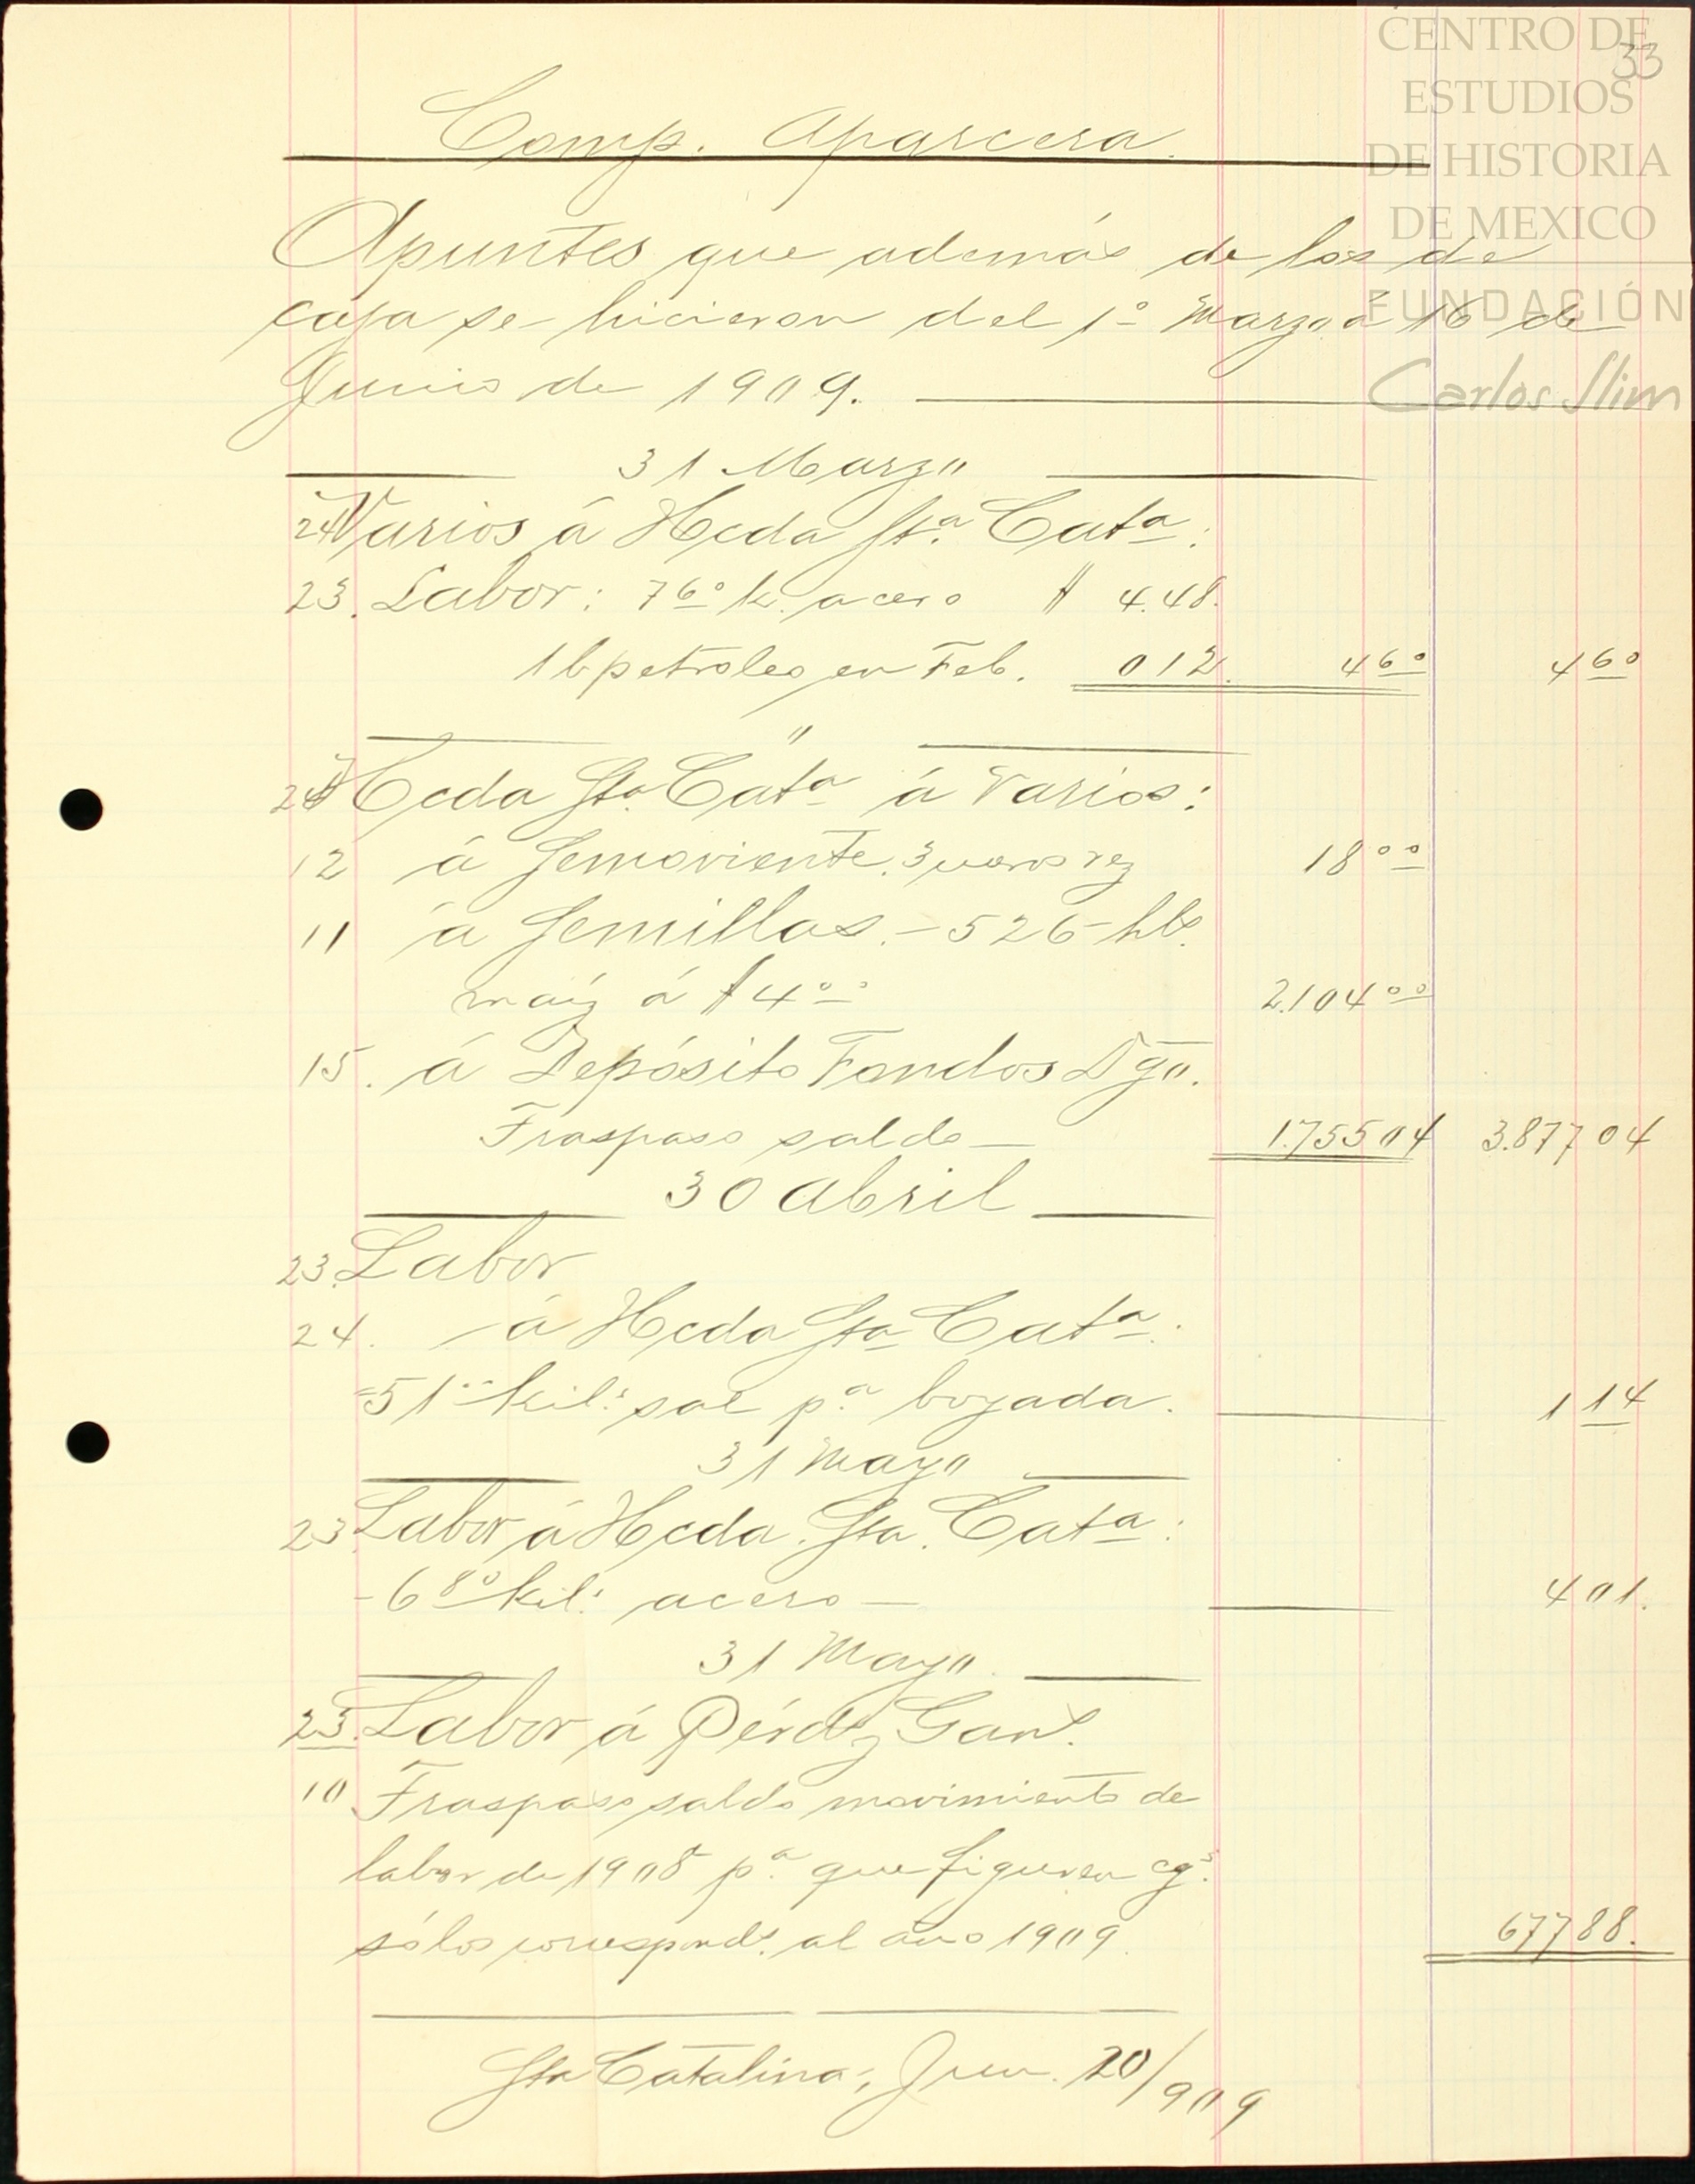 CENTRO DE
ESTUDIOS
DE HISTORIA
DE MEXICO
FUNDACIÓN
Carlos Slim
33
Comp. Aparcera.
Apuntes que además de los de
caja se hicieron del 1º Marzo á 16 de
Junio de 1909.
31 Marzo
24 Varios á Hcda Sta. Cata:
23. Labor: 760 k. acero $ 4.48.
1 b petroleo en Feb. 012. 460 460
"
24 Hcda Sta. Cata á Varios:
12 á Semoviente. 3 cueros rez 1800
11 á Semillas. - 526 - hls.
maíz á $ 400 2.10400
15. á Depósito Fondos Dgo.
Traspaso saldo — 1.75504 3.87704
30 Abril
23. Labor
24. á Hcda Sta Cata:
=51 kil: sal pa. boyada. 114
31 Mayo
23. Labor á Hcda. Sta. Cata:
- 680 kil: acero — 401.
31 Mayo
23. Labor á Pérds y Gans.
10 Traspaso saldo movimiento de
labor de 1908 pa. que figuren cgs.
sólos corresponds. al año 1909. 67788.
Sta Catalina, Jun. 20/909